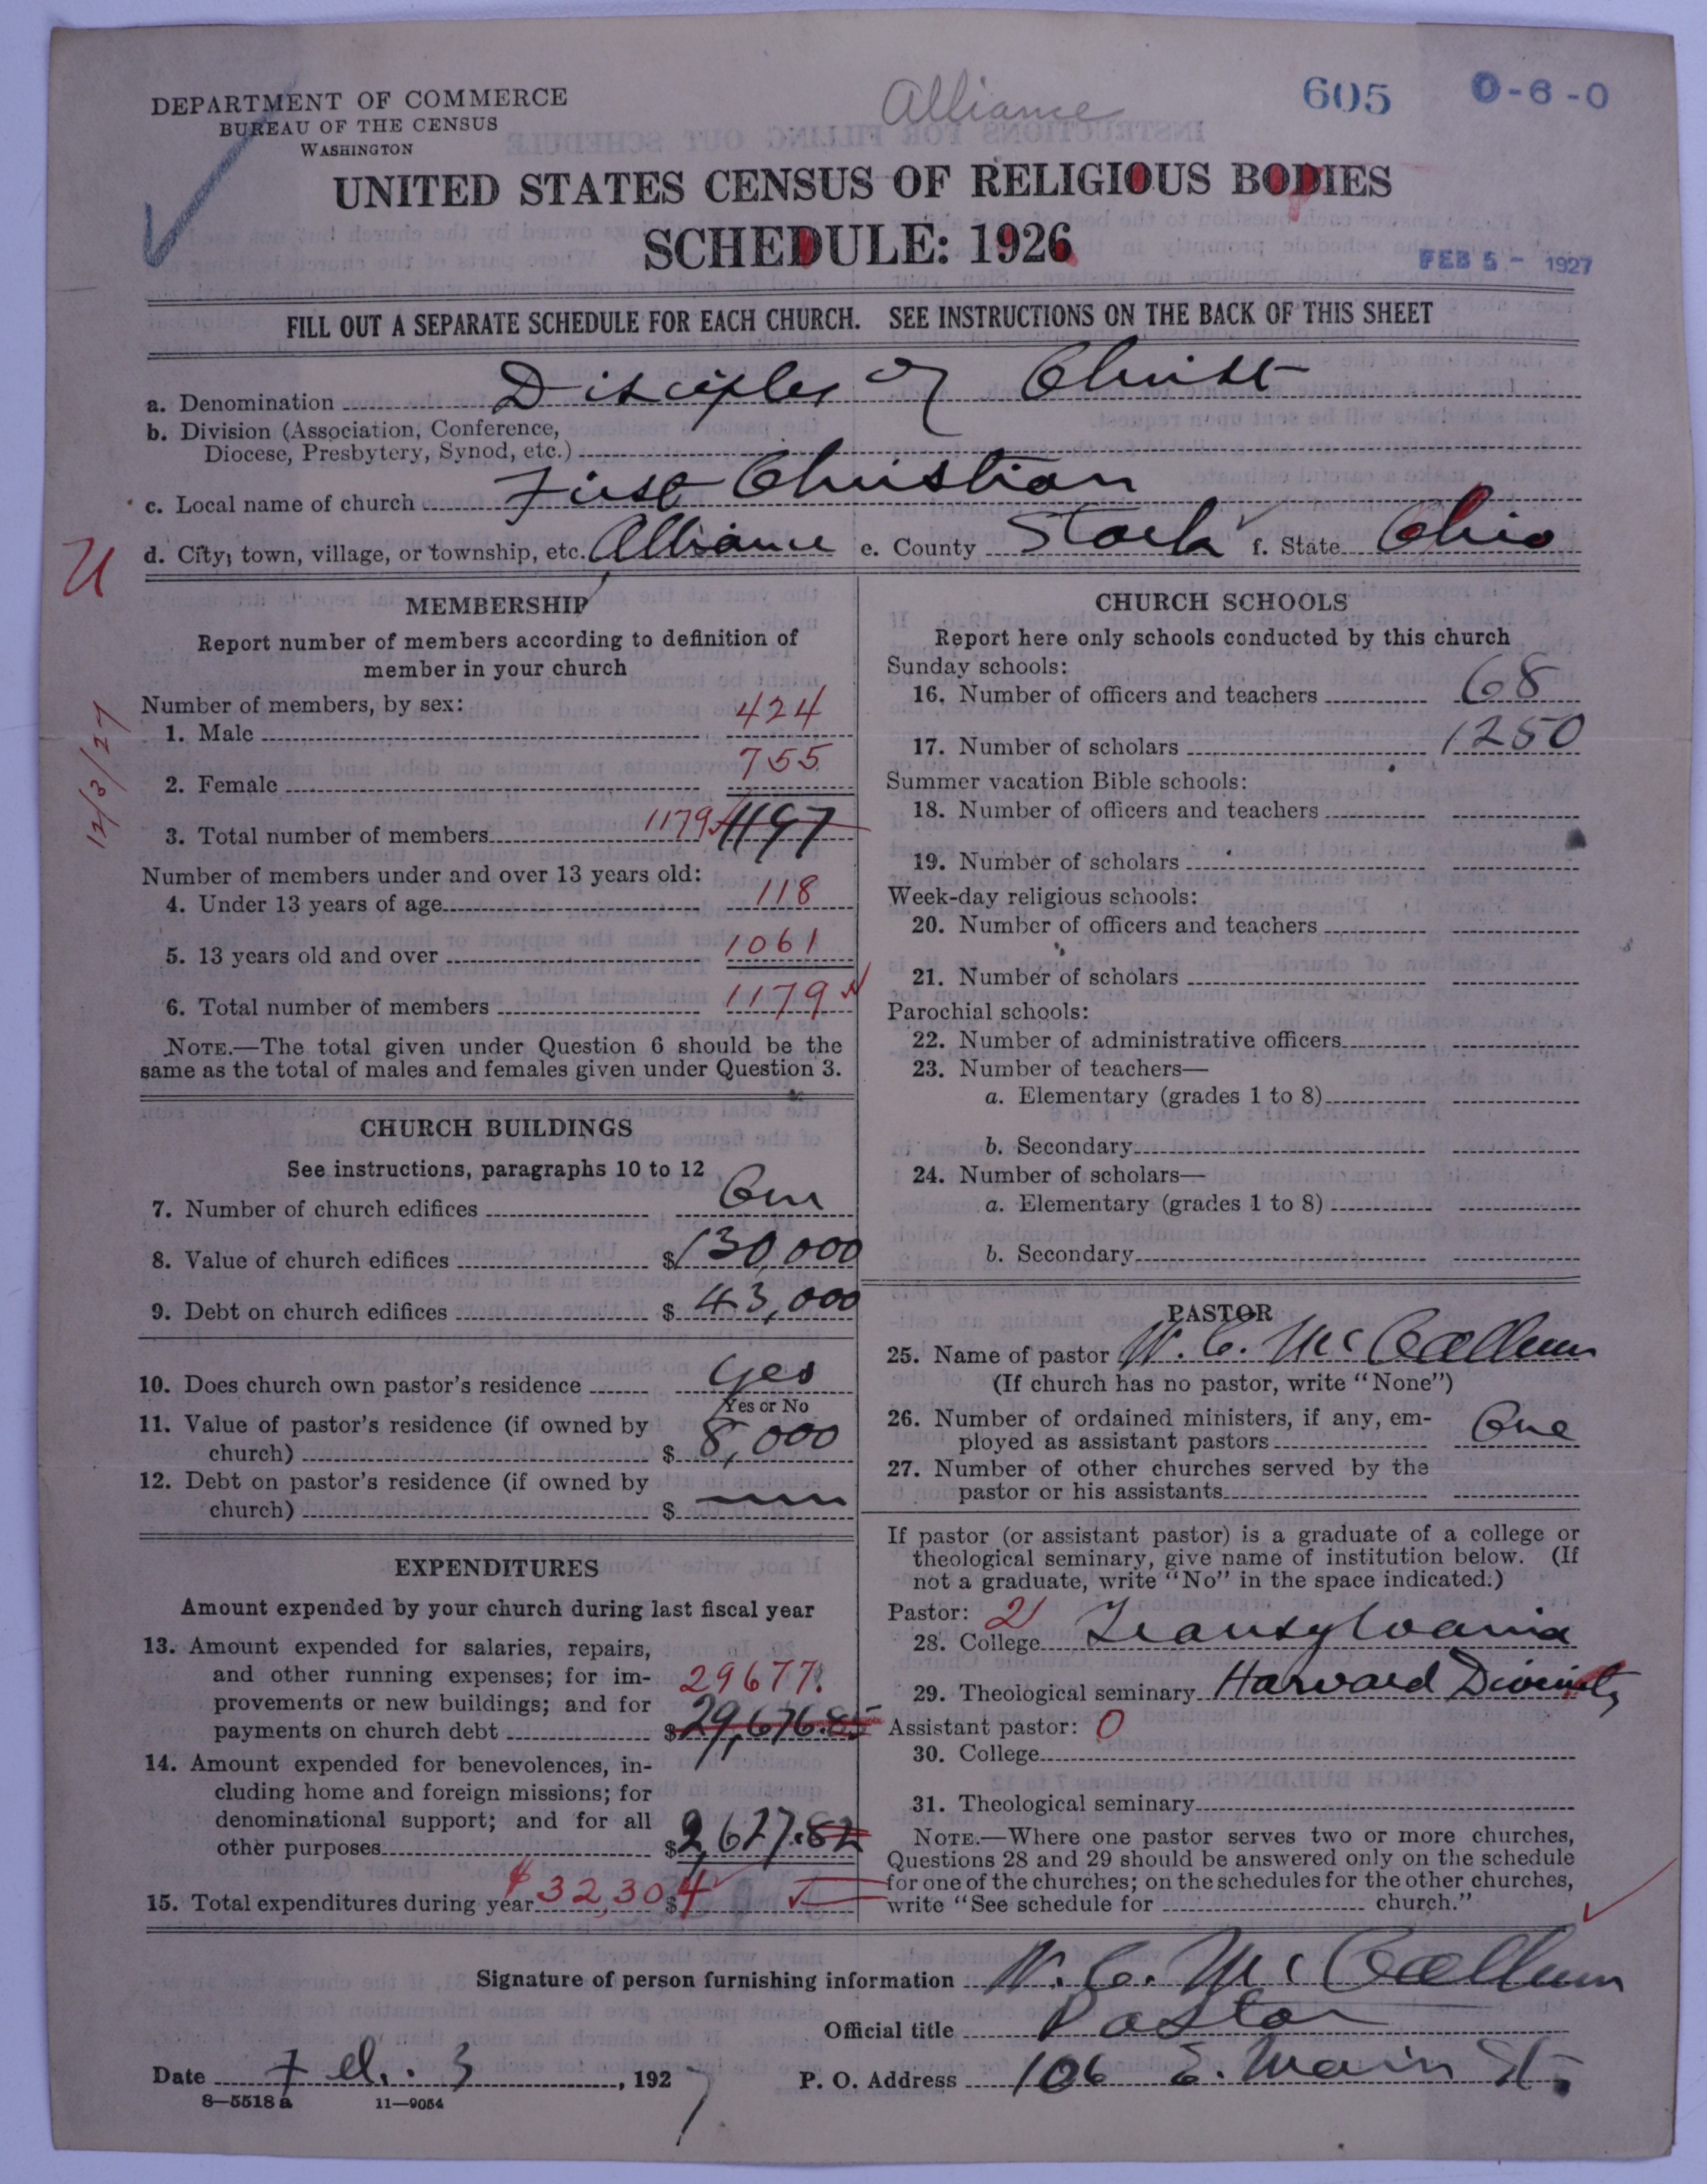 Alliance
605
0-6-0
DEPARTMENT OF COMMERCE
BUREAU OF THE CENSUS
WASHINGTON
UNITED STATES CENSUS OF RELIGIOUS BODIES
SCHEDULE: 1926
FEB 5 - 1927
FILL OUT A SEPARATE SCHEDULE FOR EACH CHURCH. SEE INSTRUCTIONS ON THE BACK OF THIS SHEET
a. Denomination Disciples of Christ
b. Division (Association, Conference,
Diocese, Presbytery, Synod, etc.)
c. Local name of church First Christian
d. City, town, village, or township, etc. Alliance e. County Stark f. State Ohio
U
12/3/27
MEMBERSHIP
Report number of members according to definition of
member in your church
Number of members, by sex:
1. Male 424
2. Female 755
3. Total number of members 1179 1197
Number of members under and over 13 years old:
4. Under 13 years of age 118
5. 13 years old and over 1061
6. Total number of members 1179
NOTE.—The total given under Question 6 should be the
same as the total of males and females given under Question 3.
CHURCH BUILDINGS
See instructions, paragraphs 10 to 12
7. Number of church edifices One
8. Value of church edifices $130,000
9. Debt on church edifices $ 43,000
10. Does church own pastor's residence Yes
Yes or No
11. Value of pastor's residence (if owned by
church) $ 8,000
12. Debt on pastor's residence (if owned by
church) $
EXPENDITURES
Amount expended by your church during last fiscal year
13. Amount expended for salaries, repairs,
and other running expenses; for im-
provements or new buildings; and for
29677.
payments on church debt $29,676.85
14. Amount expended for benevolences, in-
cluding home and foreign missions; for
denominational support; and for all
other purposes $2,627.82
15. Total expenditures during year $32,304 $
CHURCH SCHOOLS
Report here only schools conducted by this church
Sunday schools:
16. Number of officers and teachers 68
17. Number of scholars 1250
Summer vacation Bible schools:
18. Number of officers and teachers
19. Number of scholars
Week-day religious schools:
20. Number of officers and teachers
21. Number of scholars
Parochial schools:
22. Number of administrative officers
23. Number of teachers—
a. Elementary (grades 1 to 8)
b. Secondary
24. Number of scholars—
a. Elementary (grades 1 to 8)
b. Secondary
PASTOR
25. Name of pastor W. C. McCallum
(If church has no pastor, write "None")
26. Number of ordained ministers, if any, em-
ployed as assistant pastors One
27. Number of other churches served by the
pastor or his assistants
If pastor (or assistant pastor) is a graduate of a college or
theological seminary, give name of institution below. (If
not a graduate, write "No" in the space indicated.)
Pastor: 2
28. College Transylvania
29. Theological seminary Harvard Divinity
Assistant pastor: 0
30. College
31. Theological seminary
NOTE.—Where one pastor serves two or more churches,
Questions 28 and 29 should be answered only on the schedule
for one of the churches; on the schedules for the other churches,
write "See schedule for church."
Signature of person furnishing information W. C. McCallum
Official title Pastor
Date Feb. 3, 1927
P. O. Address 106 E. Main St.
8—5518 a 11—9054